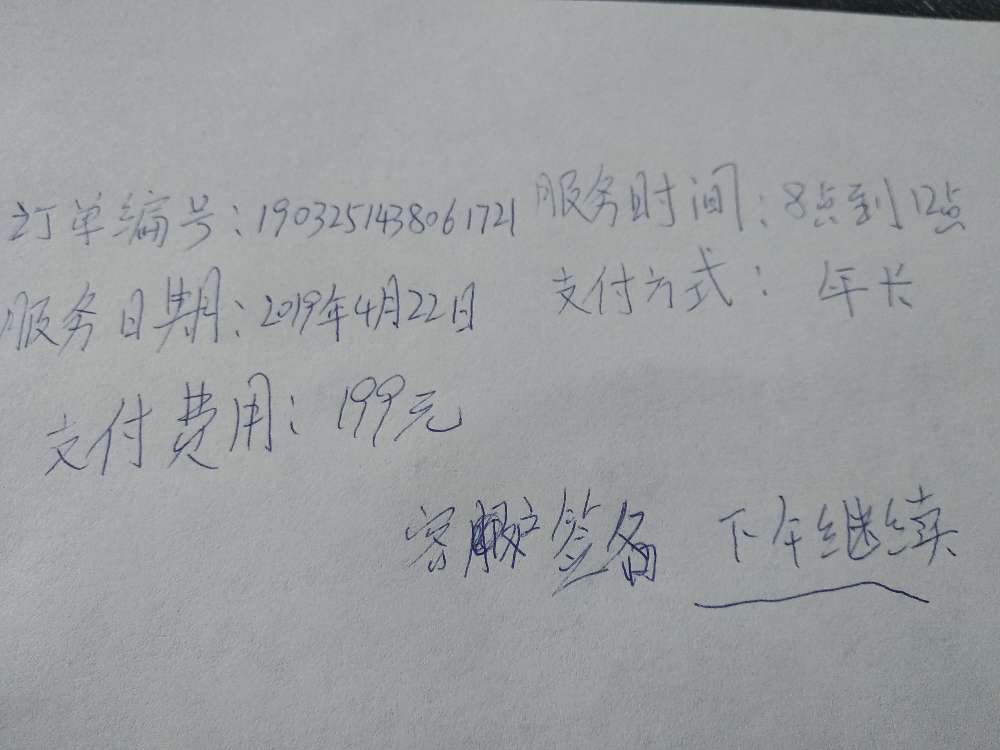 订单编号:1903251438061721 服务时间:8点到12点
服务日期:2019年4月22日 支付方式:年长
支付费用:199元
客户签名 下午继续